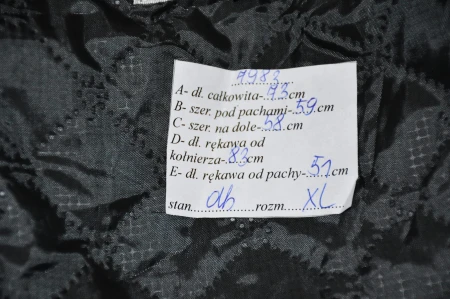 7983
A- dł. całkowita-73cm
B- szer. pod pachami-59cm
C- szer. na dole-58.cm
D- dł. rękawa od
kołnierza-83cm
E- dł. rękawa od pachy-51cm
stan db rozm. XL